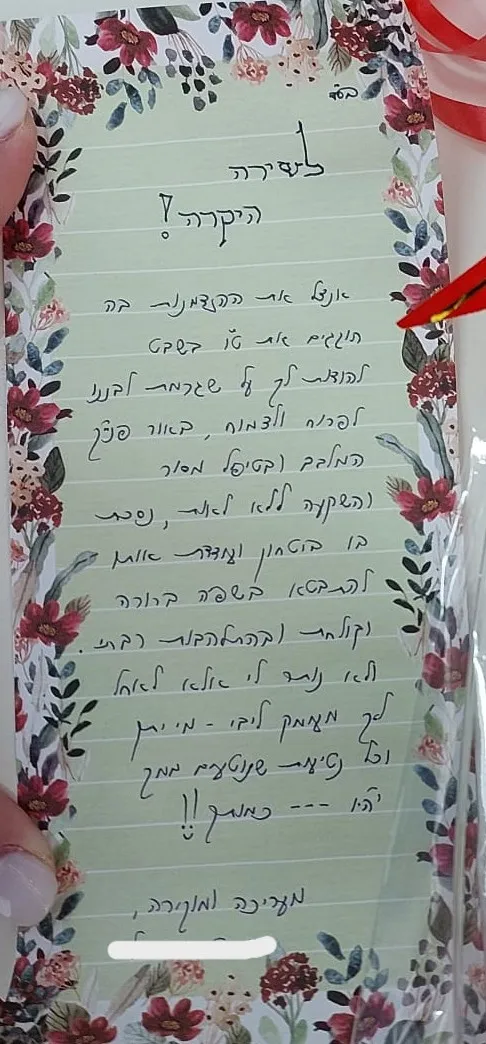 בס"ד
לשירה
היקרה!
אנצל את ההזדמנות בה
חוגגים את ט"ו בשבט
להודות לך על שגרמת לבננו
לפרוח ולצמוח, באור פניך
המלבב ובטיפול מסור
והשקעה ללא לאות, נסכת
בו ביטחון ועודדת אותו
להתבטא בשפה ברורה
וקולחת ובהתלהבות רבתי.
ולא נותר לי אלא לאחל
לך מעומק ליבי - מי יתן
וכל נטיעות שנוטעים ממך
יהיו --- כמותך!!
מעריכה ומוקירה,